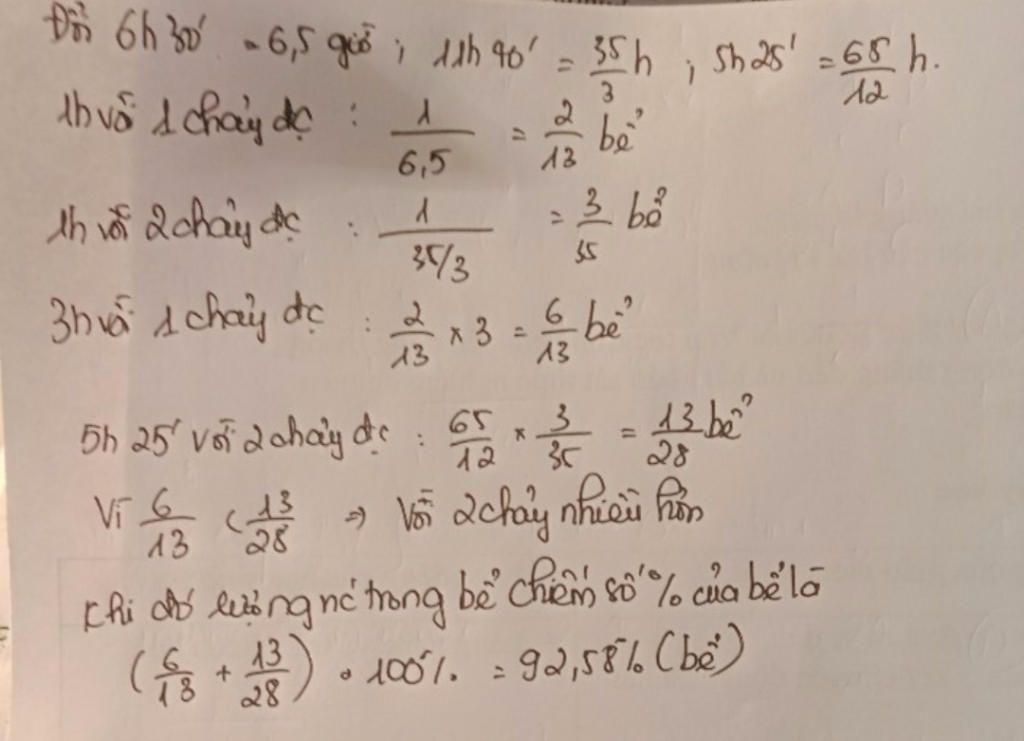 Đổi 6h30' = 6,5 giờ ; 11h40' = 35/3 h ; 5h25' = 65/12 h.
1h vòi 1 chảy đc : 1/6,5 = 2/13 bể
1h vòi 2 chảy đc : 1/35/3 = 3/35 bể
3h vòi 1 chảy đc : 2/13 × 3 = 6/13 bể
5h 25' vòi 2 chảy đc : 65/12 × 3/35 = 13/28 bể
Vì 6/13 < 13/28 => Vòi 2 chảy nhiều hơn
Khi đó lượng nc trong bể chiếm số % của bể là
(6/13 + 13/28) . 100% = 92,58% (bể)